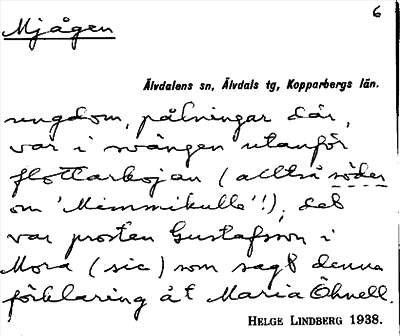 6
Mjågen
Älvdalens sn, Älvdals tg, Kopparbergs län.
ungdom, pålningar där,
var i svängen utanför
flottarkojan (alltså söder
om 'Mimmikulle'!), det
var prosten Gustafsson i
Mora (sic) som sagt denna
förklaring åt Maria Öhnell.
HELGE LINDBERG 1938.